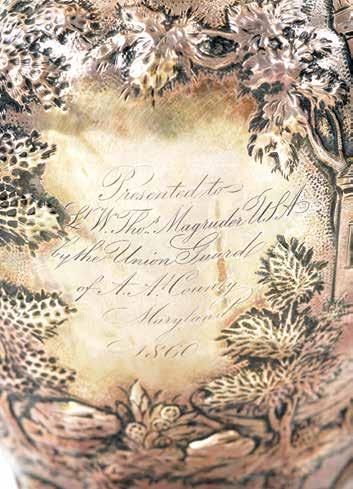 Presented to
Lt Wm Thos. Magruder USA
by the Union Guard
of A. A. County
Maryland
1860